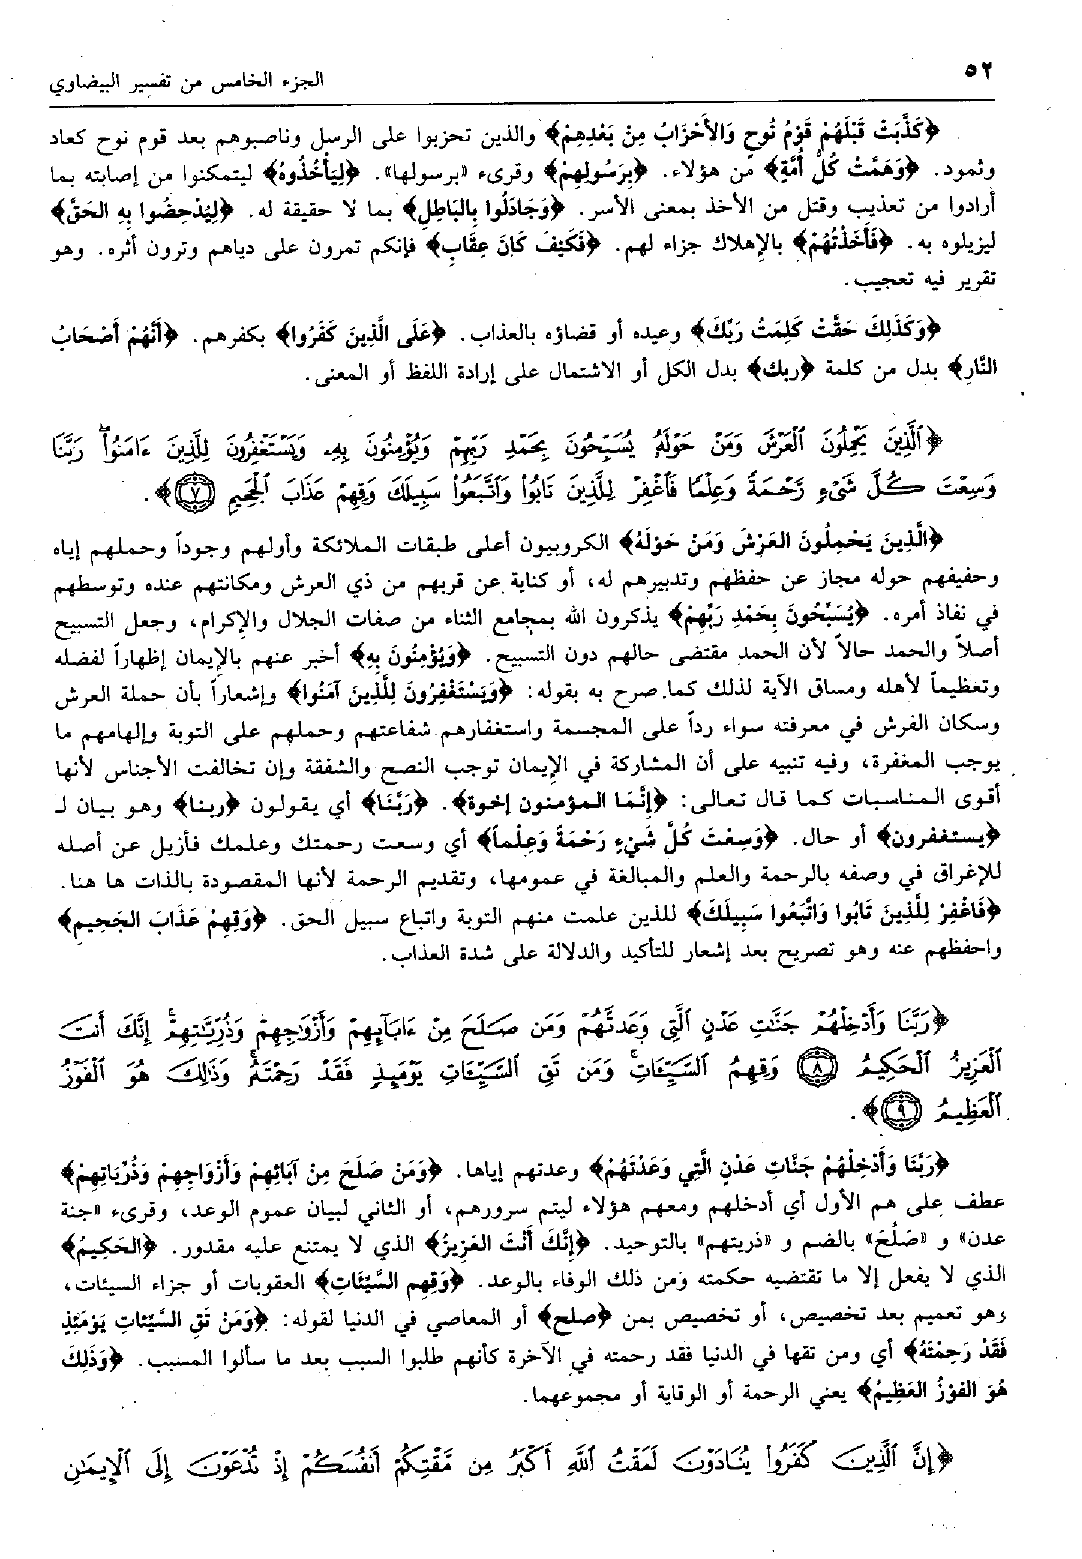 ٥٢
الجزء الخامس من تفسير البيضاوي
﴿كَذَّبَتْ قَبْلَهُمْ قَوْمُ نُوحٍ وَالأَحْزَابُ مِنْ بَعْدِهِمْ﴾ والذين تحزبوا على الرسل وناصبوهم بعد قوم نوح كعاد
وثمود. ﴿وَهَمَّتْ كُلُّ أُمَّةٍ﴾ من هؤلاء. ﴿بِرَسُولِهِمْ﴾ وقرىء «برسولها». ﴿لِيَأْخُذُوهُ﴾ ليتمكنوا من إصابته بما
أرادوا من تعذيب وقتل من الأخذ بمعنى الأسر. ﴿وَجَادَلُوا بِالبَاطِلِ﴾ بما لا حقيقة له. ﴿لِيُدْحِضُوا بِهِ الحَقَّ﴾
ليزيلوه به. ﴿فَأَخَذْتُهُمْ﴾ بالإِهلاك جزاء لهم. ﴿فَكَيْفَ كَانَ عِقَابِ﴾ فإنكم تمرون على دياهم وترون أثره. وهو
تقرير فيه تعجيب.
﴿وَكَذَلِكَ حَقَّتْ كَلِمَتُ رَبِّكَ﴾ وعيده أو قضاؤه بالعذاب. ﴿عَلَى الَّذِينَ كَفَرُوا﴾ بكفرهم. ﴿أَنَّهُمْ أَصْحَابُ
النَّارِ﴾ بدل من كلمة ﴿ربك﴾ بدل الكل أو الاشتمال على إرادة اللفظ أو المعنى.
﴿ٱلَّذِينَ يَحْمِلُونَ ٱلْعَرْشَ وَمَنْ حَوْلَهُ يُسَبِّحُونَ بِحَمْدِ رَبِّهِمْ وَيُؤْمِنُونَ بِهِۦ وَيَسْتَغْفِرُونَ لِلَّذِينَ ءَامَنُواْ رَبَّنَا
وَسِعْتَ كُلَّ شَىْءٍ رَّحْمَةً وَعِلْمًا فَٱغْفِرْ لِلَّذِينَ تَابُواْ وَٱتَّبَعُواْ سَبِيلَكَ وَقِهِمْ عَذَابَ ٱلْجَحِيمِ ٧﴾.
﴿الَّذِينَ يَحْمِلُونَ العَرْشَ وَمَنْ حَوْلَهُ﴾ الكروبيون أعلى طبقات الملائكة وأولهم وجوداً وحملهم إياه
وحفيفهم حوله مجاز عن حفظهم وتدبيرهم له، أو كناية عن قربهم من ذي العرش ومكانتهم عنده وتوسطهم
في نفاذ أمره. ﴿يُسَبِّحُونَ بِحَمْدِ رَبِّهِمْ﴾ يذكرون الله بمجامع الثناء من صفات الجلال والإكرام، وجعل التسبيح
أصلاً والحمد حالاً لأن الحمد مقتضى حالهم دون التسبيح. ﴿وَيُؤْمِنُونَ بِهِ﴾ أخبر عنهم بالإيمان إظهاراً لفضله
وتعظيماً لأهله ومساق الآية لذلك كما صرح به بقوله: ﴿وَيَسْتَغْفِرُونَ لِلَّذِينَ آمَنُوا﴾ وإشعاراً بأن حملة العرش
وسكان الفرش في معرفته سواء رداً على المجسمة واستغفارهم شفاعتهم وحملهم على التوبة وإلهامهم ما
يوجب المغفرة، وفيه تنبيه على أن المشاركة في الإيمان توجب النصح والشفقة وإن تخالفت الأجناس لأنها
أقوى المناسبات كما قال تعالى: ﴿إِنَّمَا المؤمنون إخوة﴾. ﴿رَبَّنَا﴾ أي يقولون ﴿ربنا﴾ وهو بيان لـ
﴿يستغفرون﴾ أو حال. ﴿وَسِعْتَ كُلَّ شَيْءٍ رَحْمَةً وَعِلْماً﴾ أي وسعت رحمتك وعلمك فأزيل عن أصله
للإغراق في وصفه بالرحمة والعلم والمبالغة في عمومها، وتقديم الرحمة لأنها المقصودة بالذات ها هنا.
﴿فَاغْفِرْ لِلَّذِينَ تَابُوا وَاتَّبَعُوا سَبِيلَكَ﴾ للذين علمت منهم التوبة واتباع سبيل الحق. ﴿وَقِهِمْ عَذَابَ الجَحِيمِ﴾
واحفظهم عنه وهو تصريح بعد إشعار للتأكيد والدلالة على شدة العذاب.
﴿رَبَّنَا وَأَدْخِلْهُمْ جَنَّٰتِ عَدْنٍ ٱلَّتِى وَعَدتَّهُمْ وَمَن صَلَحَ مِنْ ءَابَآئِهِمْ وَأَزْوَٰجِهِمْ وَذُرِّيَّٰتِهِمْ إِنَّكَ أَنتَ
ٱلْعَزِيزُ ٱلْحَكِيمُ ٨ وَقِهِمُ ٱلسَّيِّـَٔاتِ وَمَن تَقِ ٱلسَّيِّـَٔاتِ يَوْمَئِذٍ فَقَدْ رَحِمْتَهُۥ وَذَٰلِكَ هُوَ ٱلْفَوْزُ
ٱلْعَظِيمُ ٩﴾.
﴿رَبَّنَا وَأَدْخِلْهُمْ جَنَّاتِ عَدْنٍ الَّتِي وَعَدْتَهُمْ﴾ وعدتهم إياها. ﴿وَمَن صَلَحَ مِنْ آبَائِهِمْ وَأَزْوَاجِهِمْ وَذُرِّيَّاتِهِمْ﴾
عطف على هم الأول أي أدخلهم ومعهم هؤلاء ليتم سرورهم، أو الثاني لبيان عموم الوعد، وقرىء «جنة
عدن» و «صَلُحَ» بالضم و «ذريتهم» بالتوحيد. ﴿إِنَّكَ أَنْتَ العَزِيزُ﴾ الذي لا يمتنع عليه مقدور. ﴿الحَكِيمُ﴾
الذي لا يفعل إلا ما تقتضيه حكمته ومن ذلك الوفاء بالوعد. ﴿وَقِهِمِ السَّيِّئَاتِ﴾ العقوبات أو جزاء السيئات،
وهو تعميم بعد تخصيص، أو تخصيص بمن ﴿صلح﴾ أو المعاصي في الدنيا لقوله: ﴿وَمَنْ تَقِ السَّيِّئَاتِ يَوْمَئِذٍ
فَقَدْ رَحِمْتَهُ﴾ أي ومن تقها في الدنيا فقد رحمته في الآخرة كأنهم طلبوا السبب بعد ما سألوا المسبب. ﴿وَذَلِكَ
هُوَ الفَوْزُ العَظِيمُ﴾ يعني الرحمة أو الوقاية أو مجموعهما.
﴿إِنَّ ٱلَّذِينَ كَفَرُواْ يُنَادَوْنَ لَمَقْتُ ٱللَّهِ أَكْبَرُ مِن مَّقْتِكُمْ أَنفُسَكُمْ إِذْ تُدْعَوْنَ إِلَى ٱلْإِيمَٰنِ